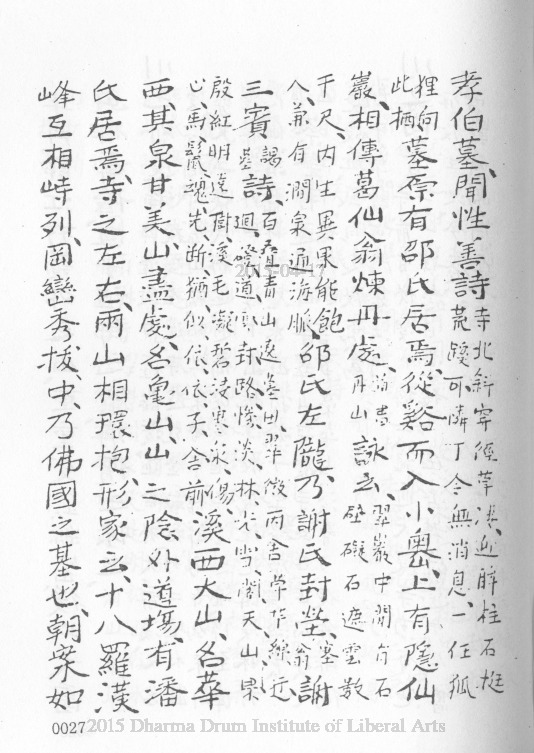 孝伯墓、聞性善詩寺北斜穿徑草凄迎眸柱石挺荒蹊可憐丁令無消息、一任狐
狸向此栖、墓原有邵氏居焉、從谿而入小嶴、上有隱仙
巖、相傳葛仙翁煉丹處、丹山詠云、翠巖中開有石壁礙石遮雲數
千尺、內生異果能飽人、兼有澗泉通海脈、邵氏左隴、乃謝氏封塋、謝
三賓謁墓詩、百疊青山遶墓田、翠微丙舍草芊綿、近迴磴道雲封路、慘淡林光雪閣天、山果
殷紅明遠樹、溪毛凝碧浸寒泉、傷心馬鬣魂先斷、猶似依依子舍前、溪西大山、名華
西、其泉甘美、山盡處、名龜山、山之陰、外道場、有潘
氏居焉、寺之左右、兩山相環抱、形家云、十八羅漢
峰互相峙列、岡巒秀拔、中乃佛國之基也、朝案如
0027
2015 Dharma Drum Institute of Liberal Arts